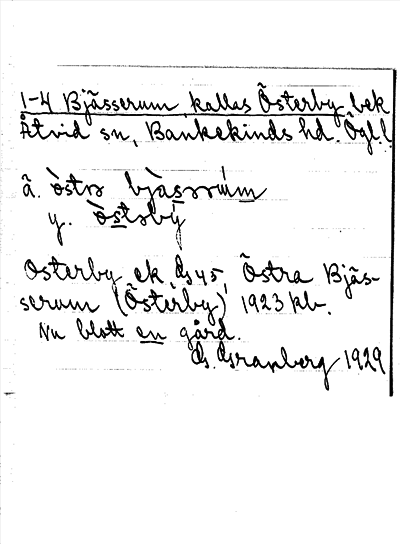 1-4 Bjässerum kallas Österby bek
Åtvid sn, Bankekinds hd. Ögl.l.
ä. òstrə bjàsərùm
y. òstəbý
Österby ek GS45, Östra Bjäs-
serum (Österby) 1923 kb.
Nu blott en gård.
G. Granberg 1929